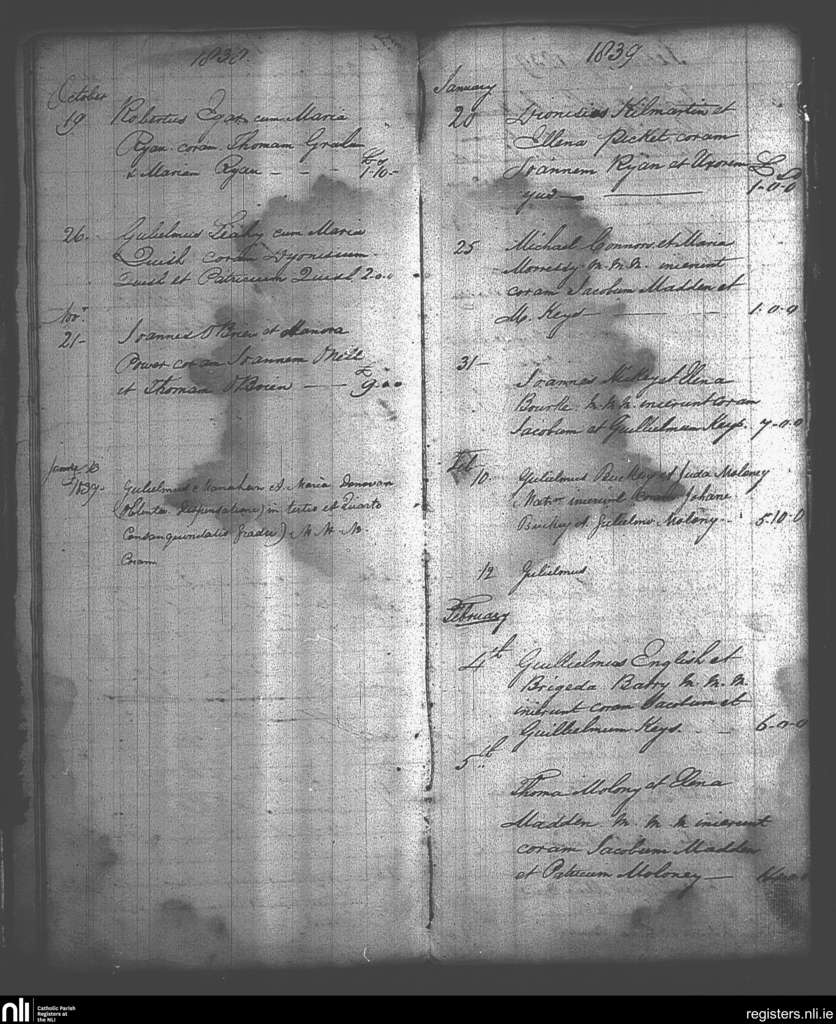 1838.
October
19 Robertus Egan cum Maria
Ryan coram Thomam
& Mariam Ryan - - - £1-10-
26. Gulielmus Leahy cum Maria
Quish coram Dyonisium
Quish et Patricium Quish 2-0-0
Novr
21- Joannes O'Brien et Hanora
Power coram Joannem
et Thomam O'Brien - £9-0-0
1839- Gulielmus Manahan et Maria Donovan
(Obtenta dispensatione) in tertio et Quarto
Consanguinitatis gradu) M. M. M.
Coram
1839
January
20 Dionisius Kilmartin et
Ellena Picket coram
Joannem Ryan et Uxorem
ejus - £1-0-0
25 Michael Connors et Maria
Morrissy M.M.M. inierunt
coram Jacobum Madden et
Keys - 1-0-0
31-
Joannes et Elena
Bourke M.M.M. inierunt coram
Jacobum et Gullielmum Keys. 7-0-0
Feb 10 Gulielmus Buckley et Juda Moloney
inierunt Coram Johane
Buckley et Gulielmo Molony - 5-10-0
12 Gulielmus
February
4th Guillielmus English et
Brigeda Barry M. M. M.
inierunt coram Jacobum et
Guillielmum Keys. - - 6-0-0
5th
Thoma Molony et Elena
Madden M. M. M. inierunt
coram Jacobum Madden
et Patricum Moloney -
nli Catholic Parish
Registers at
the NLI
registers.nli.ie